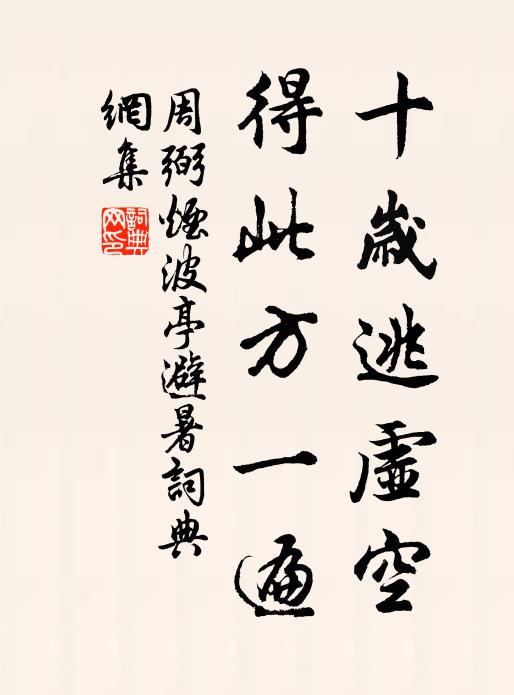 十歲逃虛空
得此方一遍
周弼煙波亭避暑詞典
網集
詞典
网印